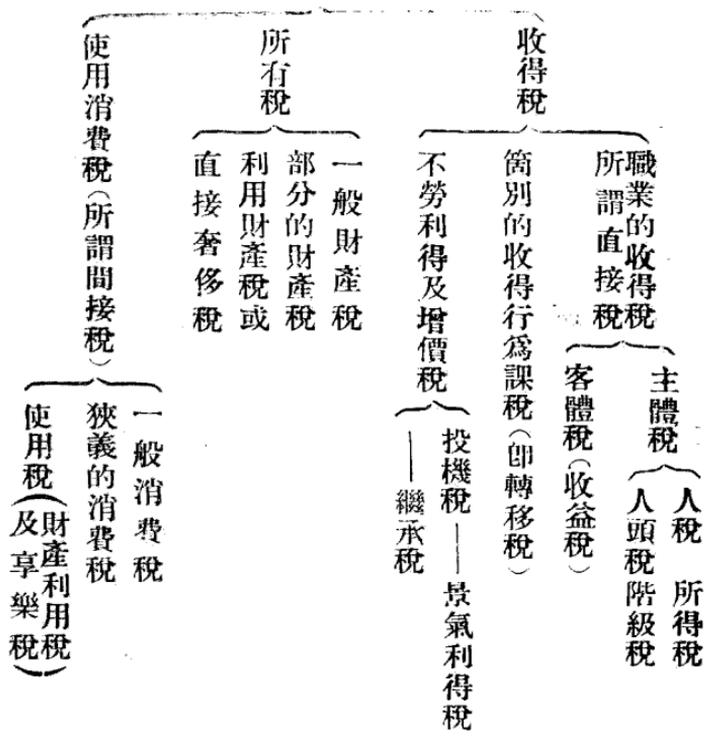 收得稅
職業的收得稅
所謂直接稅
主體稅
人稅 所得稅
人頭稅階級稅
客體稅(收益稅)
箇別的收得行爲課稅(卽轉移稅)
不勞利得及增價稅
投機稅——景氣利得稅
——繼承稅
所有稅
一般財產稅
部分的財產稅
利用財產稅或
直接奢侈稅
使用消費稅(所謂間接稅)
一般消費稅
狹義的消費稅
使用稅(財產利用稅
及享樂稅)